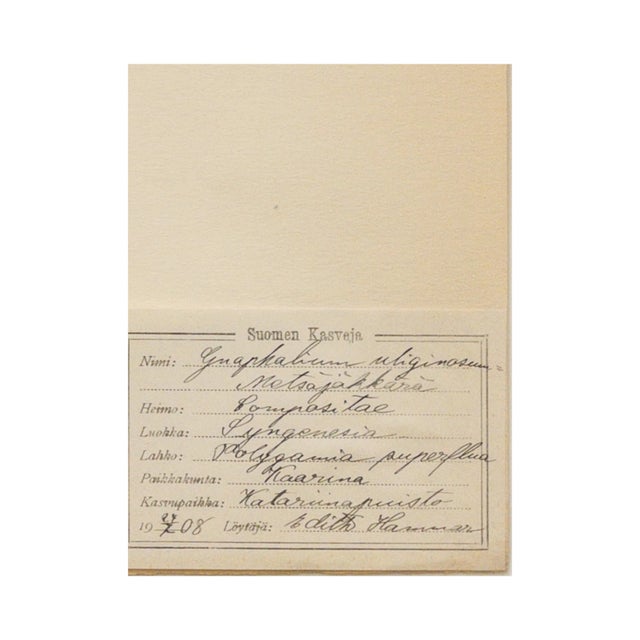 Suomen Kasveja
Nimi: Gnaphalium uliginosum=
Metsäjäkkärä
Heimo: Compositae
Luohka: Syngenesia
Lahko: Polygamia superflua
Paikkakunta: Kaarina
Kasvupaihka: Katariinapuisto
19 24/7 08 Löytäjä: Edith Hammar